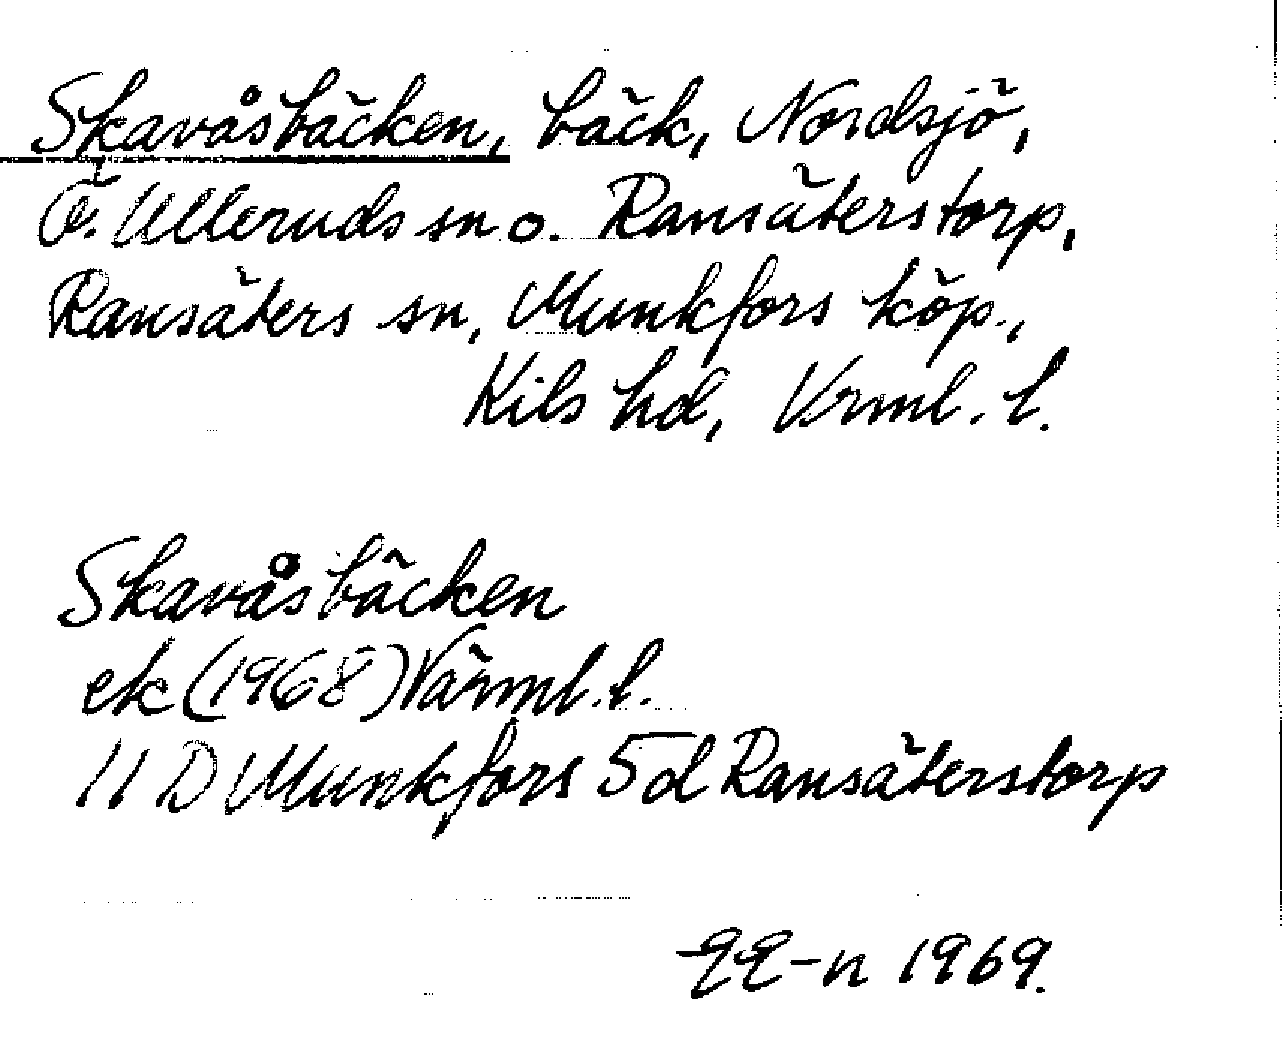 Skavåsbäcken, bäck, Nordsjö,
Ö. Ulleruds sn o. Ransäterstorp,
Ransäters sn, Munkfors köp.,
Kils hd, Vrml. l.
Skavåsbäcken
ek (1968) Värml. l.
11 D Munkfors 5d Ransäterstorp
1969.